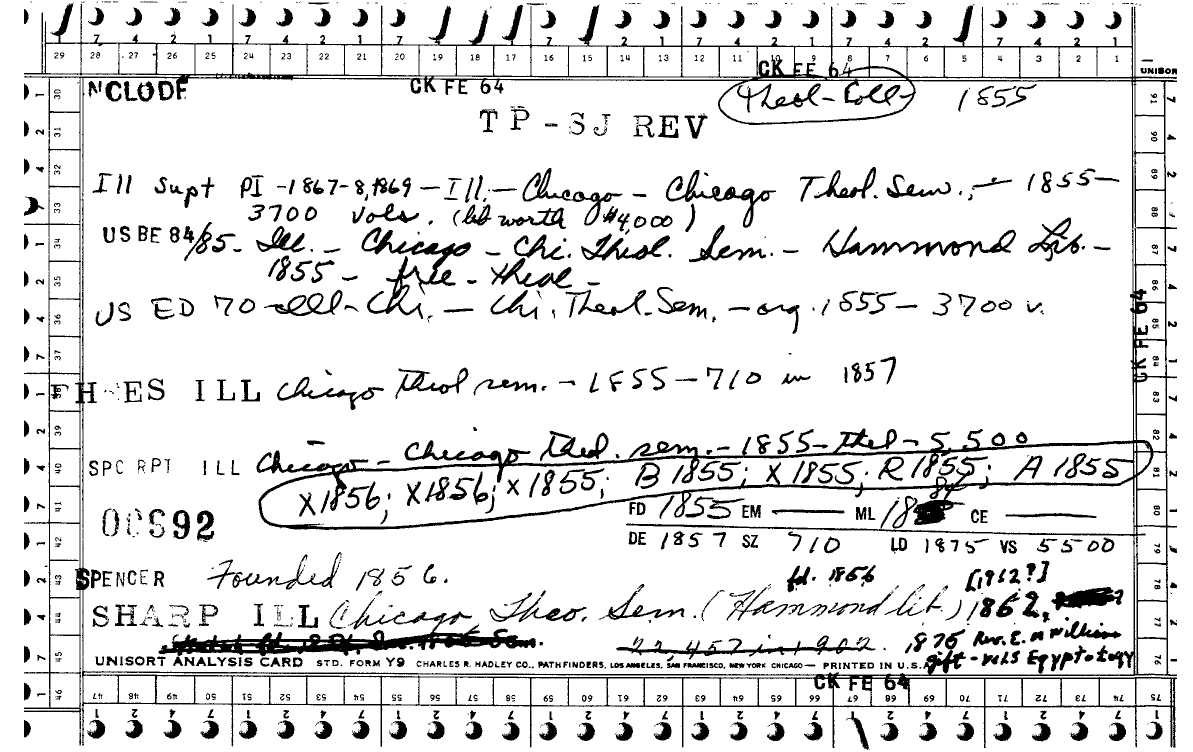 7 4 2 1 7 4 2 1 7 4 2 1 7 4 2 1 7 4 2 1 7 4 2 1 7 4 2 1
29 28 27 26 25 24 23 22 21 20 19 18 17 16 15 14 13 12 11 10 9 8 7 6 5 4 3 2 1
UNISOR
NCLUDE CK FE 64 CK FE 64
Theol-Coll- 1855
TP-SJ REV
Ill Supt PI -1867-8,1869 - Ill. - Chicago - Chicago Theol. Sem., - 1855-
3700 vols. (lib worth $4,000)
US BE 84/85- Ill. - Chicago - Chi. Theol. Sem. - Hammond Lib. -
1855 - free - theol -
US ED 70 - Ill - Chi. - Chi. Theol. Sem. - org. 1855 - 3700 v.
CK FE 64
ILL Chicago Theol sem. - 1855 - 710 in 1857
SPC RPT ILL Chicago - Chicago Theol. sem. - 1855 - theol - 5,500
X1856; X1856; X1855; B 1855; X 1855; R 1855; A 1855
OCS92
FD 1855 EM — ML 18 84 CE —
DE 1857 SZ 710 LD 1875 VS 5500
SPENCER Founded 1856.
fd. 1856 [1962?]
SHARP ILL Chicago Theo. Sem. (Hammond lib.) 1862,
22,457 in 1902. 1875 Rev. E. M Williams
gift - vols Egyptology
UNISORT ANALYSIS CARD STD. FORM Y9 CHARLES R. HADLEY CO., PATHFINDERS, LOS ANGELES, SAN FRANCISCO, NEW YORK CHICAGO — PRINTED IN U.S.A.
CK FE 64
47 48 49 50 51 52 53 54 55 56 57 58 59 60 61 62 63 64 65 66 67 68 69 70 71 72 73 74 75
1 2 4 7 1 2 4 7 1 2 4 7 1 2 4 7 1 2 4 7 1 2 4 7 1 2 4 7 1